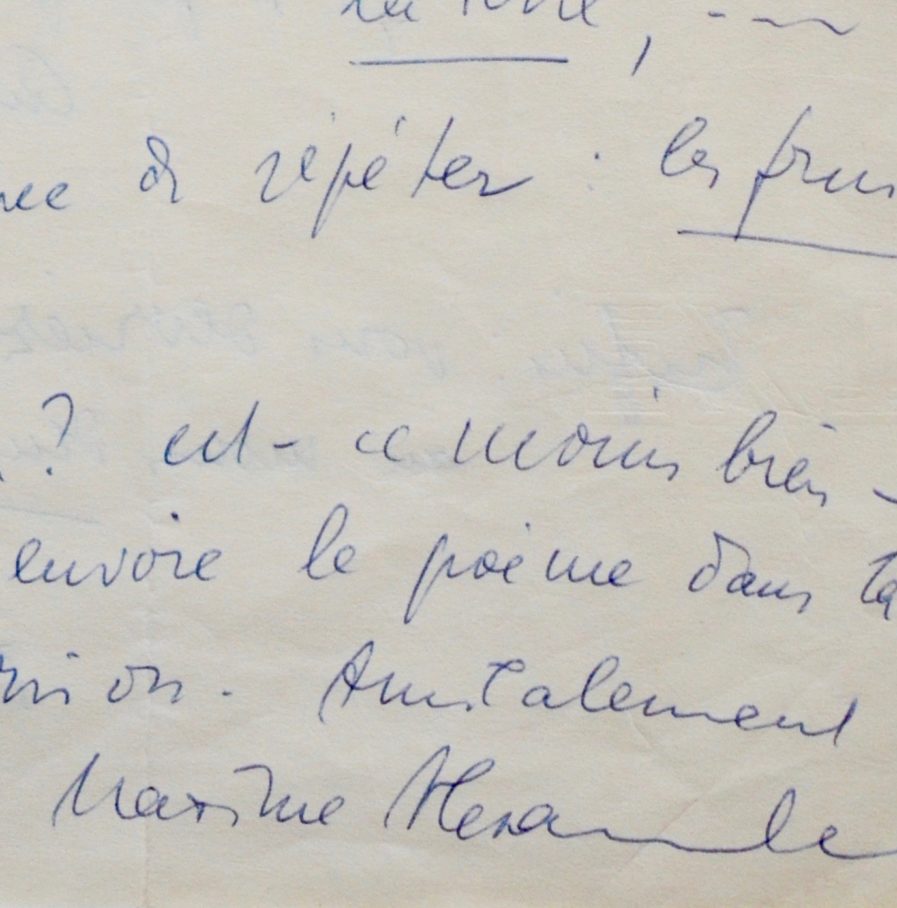 la terre, ---
de répéter : les
? est-ce moins bien -
envoie le poème dans
Amicalement
Maxime Alexandre